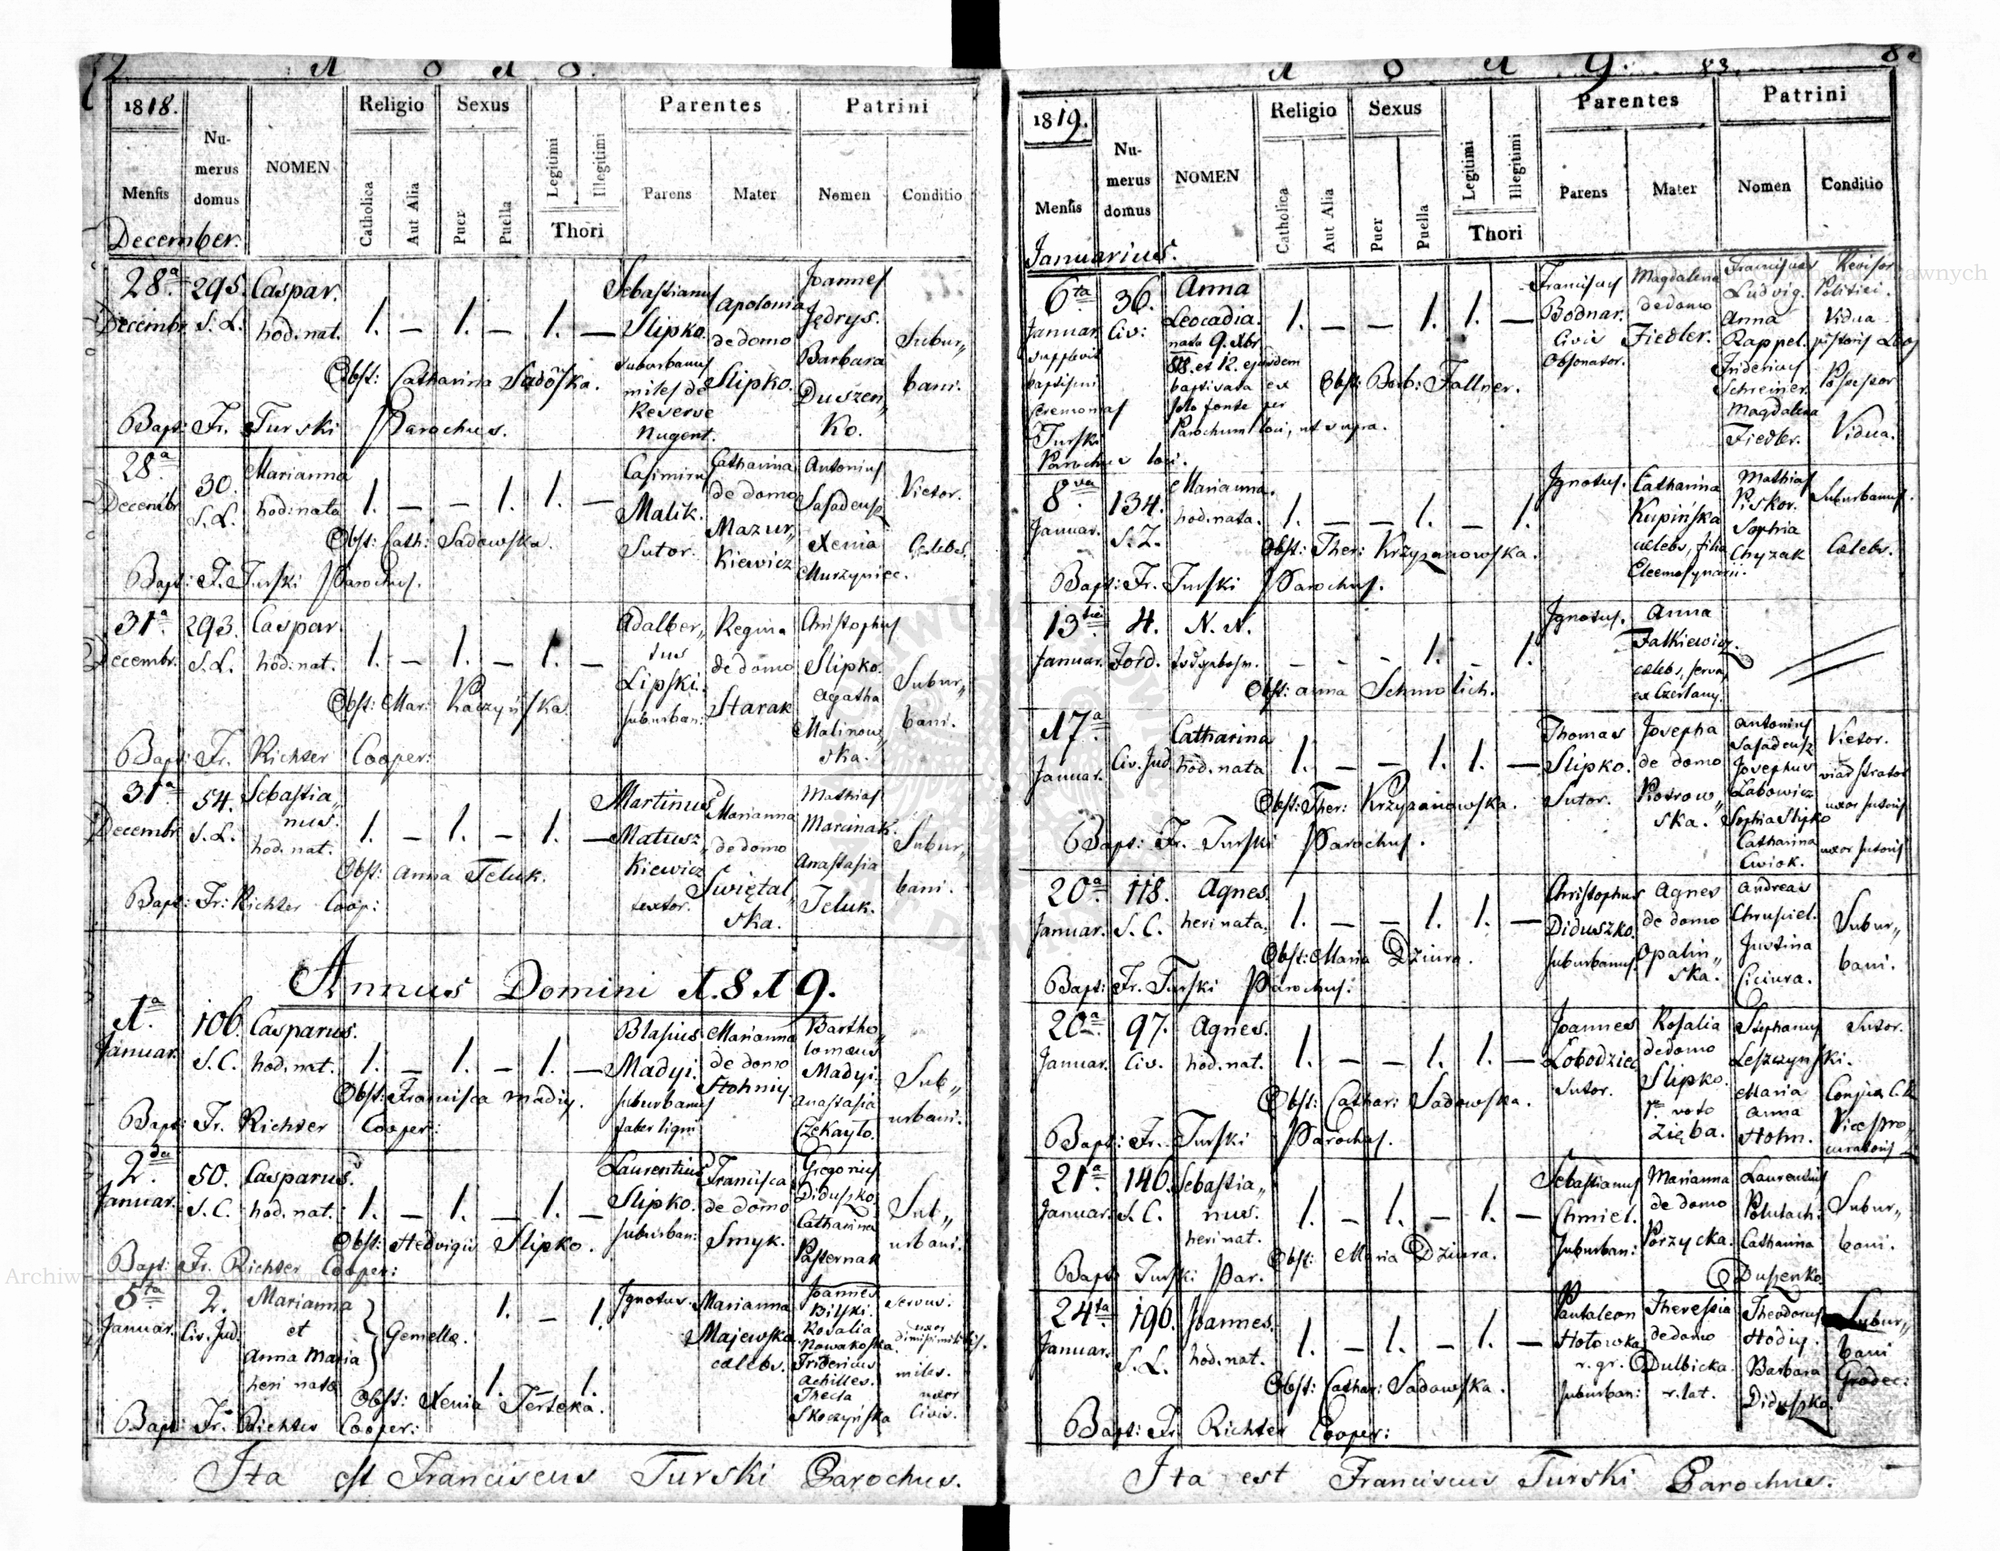 82.
1 8 1 8.
1818.
Mensis
Numerus domus
NOMEN
Religio
Catholica
Aut Alia
Sexus
Puer
Puella
Legitimi
Illegitimi
Thori
Parentes
Parens
Mater
Patrini
Nomen
Conditio
December.
28a Decembr. 295. S.L. Caspar. hod: nat. 1. — 1. — 1. — Sebastianus Slipko. suburbanus miles de Reserve Nugent. Apolonia de domo Slipko. Joannes Jędrys. Barbara Duszen„ Ko. Subur„ bani.
Obst: Catharina Sadoska.
Bapt: Fr. Turski Parochus.
28a Decembr. 30. S.L. Marianna hod: nata 1. — — 1. 1. — Casimirus Malik. Sutor. Catharina de domo Mazur„ Kiewicz Antonius Sasadeusz Xenia Murzyniec. Vietor. Cælebs.
Obst: Cath: Sadowska.
Bapt: F. Turski Parochus.
31a Decembr. 293. S.L. Caspar. hod: nat. 1. — 1. — 1. — Adalber„ tus Lipski. suburban: Regina de domo Starak Christophus Slipko. Agatha Malinow„ ska. Subur„ bani.
Obst: Mar: Kaczyńska.
Bapt: Fr. Richter Cooper:
31a Decembr. 54. S.L. Sebastia„ nus. hod. nat. 1. — 1. — 1. — Martinus Matusz„ Kiewicz textor. Marianna de domo Swiętal„ ska. Mathias Marcinak. Anastasia Teluk. Subur„ bani.
Obst: Anna Teluk.
Bapt: Fr: Richter Coop:
Annus Domini 1819.
1a Januar. 106. S.C. Casparus. hod. nat. 1. — 1. — 1. — Blasius Madyi. suburbanus faber lign: Marianna de domo Stohniy. Bartho„ lomæus Madyi. Anastasia Czekayło. Sub„ urbani.
Obst: Francisca Madiy.
Bapt: Fr. Richter Cooper:
2da Januar. 50. S.C. Casparus. hod. nat. 1. — 1. — 1. — Laurentius Slipko. suburban: Francisca de domo Smyk. Gregorius Diduszko. Catharina Pasternak Sub„ urbani.
Obst: Hedvigis Slipko.
Bapt: Fr. Richter Cooper:
5ta Januar. 2. Civ. Jud. Marianna et Anna Maria heri natæ Gemellæ. 1. — 1. 1. 1. Ignotus. Marianna Majewska. cælebs. Joannes Bilski. Rosalia Nowakoska. Fridericus Achilles. Thecla Skoczyńska servus. uxor dimissi militis. miles. uxor Civis.
Obst: Xenia Terteka.
Bapt: Fr. Richter Cooper:
Ita est Franciscus Turski Parochus.
1 8 1 9. 83.
1819.
Mensis
Numerus domus
NOMEN
Religio
Catholica
Aut Alia
Sexus
Puer
Puella
Legitimi
Illegitimi
Thori
Parentes
Parens
Mater
Patrini
Nomen
Conditio
Januarius.
6ta Januar. supplevit baptismi ceremonias Turski Parochus loci. 36. Civ: Anna Leocadia. nata 9. Xbr 818. et 12. ejusdem baptisata ex solo fonte per Parochum loci, ut supra. 1. — — 1. 1. — Franciscus Bodnar. Civis Obsonator. Magdalena de domo Fiedler. Franciscus Ludvig. Anna Rappel. Fridericus Schreiner. Magdalena Fiedler. Revisor Politici. Vidua pistoris Possessor Vidua.
Obst: Barb: Fallner.
8va Januar. 134. S.L. Marianna. hod. nata. 1. — — 1. — 1. Ignotus. Catharina Kupińska cælebs, filia Eleemosynarii. Mathias Piskor. Sophia Chyzak Suburbanus. Cælebs.
Obst: Ther: Krzyzanowska.
Bapt: Fr. Turski Parochus.
13tia Januar. 4. Ford. N. N. todgebohrn. — — — 1. — 1. Ignotus. Anna Falkiewicz. cælebs, serva,
Obst: Anna Schmolich.
17a Januar. Civ. Jud. Catharina hod. nata 1. — — 1. 1. — Thomas Slipko. Sutor. Josepha de domo Piotrow„ ska. Antonius Sasadeusz Josephus Labowicz Sophia Slipko Catharina Cwiok. Vietor. uxor sutoris uxor sutoris
Obst: Ther: Krzyzanowska.
Bapt: Fr. Turski Parochus.
20a Januar. 118. S.C. Agnes. heri nata. 1. — — 1. 1. — Christophus Diduszko. suburbanus. Agnes de domo Opalin„ ska. Andreas Chrusciel. Justina Ciciura. Subur„ bani.
Obst: Maria Dziura.
Bapt: Fr. Turski Parochus.
20a Januar. 97. Civ. Agnes. hod. nat. 1. — — 1. 1. — Joannes Lobodziec Sutor. Rosalia de domo Slipko. 1mo voto Zięba. Stephanus Leszczyński. Maria Anna Hohn. Sutor. Conjux C.R. Vicepro„ curatoris
Obst: Cathar: Sadowska.
Bapt: Fr. Turski Parochus.
21a Januar. 146. S.C. Sebastia„ nus. heri nat. 1. — 1. — 1. — Sebastianus Chmiel. suburban: Marianna de domo Porzycka. Laurentius Polutach: Catharina Duszenko. Subur„ bani.
Obst: Maria Dziura.
Bapt: Turski Par.
24ta Januar. 196. S.L. Joannes. hod. nat. 1. — 1. — 1. — Pantaleon Hołowka r. gr. suburban: Theresia de domo Dulbicka. r. lat. Theodorus Hodiy. Barbara Diduszko. Subur„ bani Grodec:
Obst: Cathar: Sadowska.
Bapt: Fr. Richter Cooper:
Ita est Franciscus Turski Parochus.